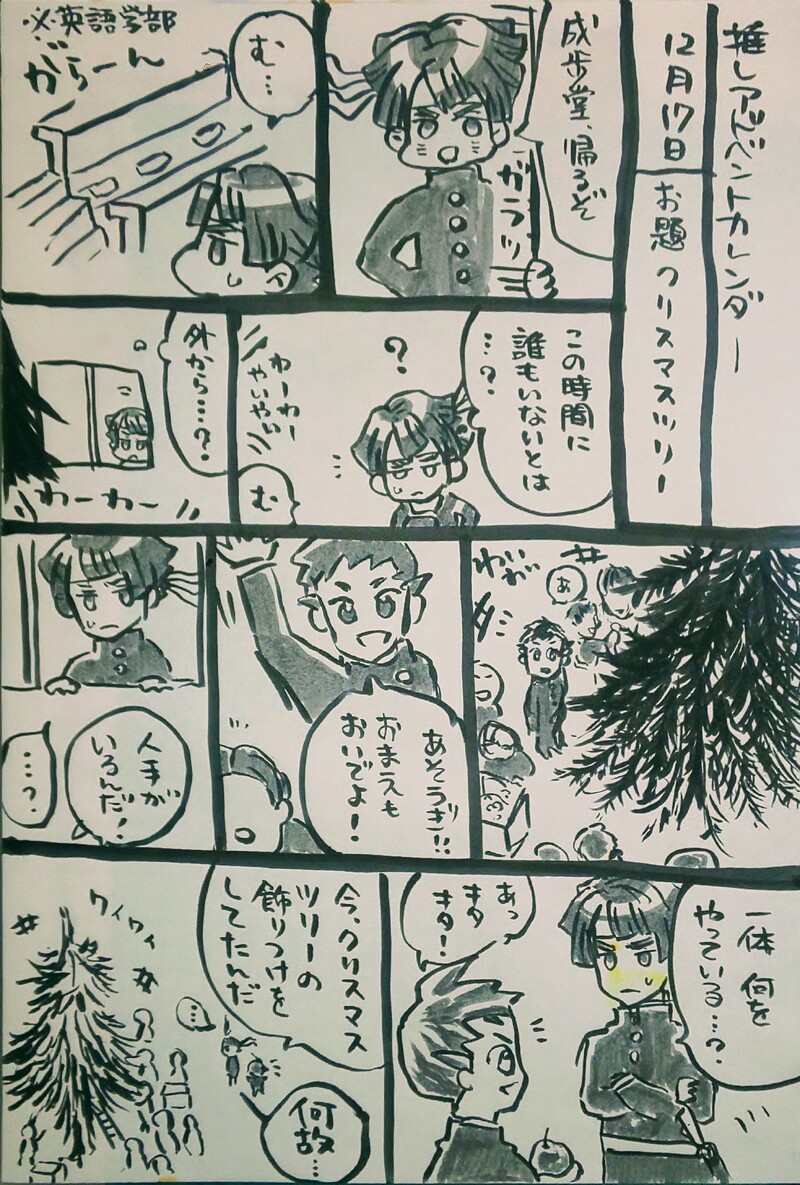 推しアドベントカレンダー
12月17日
お題 クリスマスツリー
成歩堂、帰るぞ
ガラッ
む…
※英語学部
がらーん
この時間に
誰もいないとは
…?
?
わーわー
やいやい
む
外から…?
わーわー
わいがや
あ
あそうぎ!!
おまえも
おいでよ!
人手が
いるんだ!
…?
一体 何を
やっている…?
あっ
きた
きた!
今、クリスマス
ツリーの
飾りつけを
してたんだ
何故…
…
ワイワイ